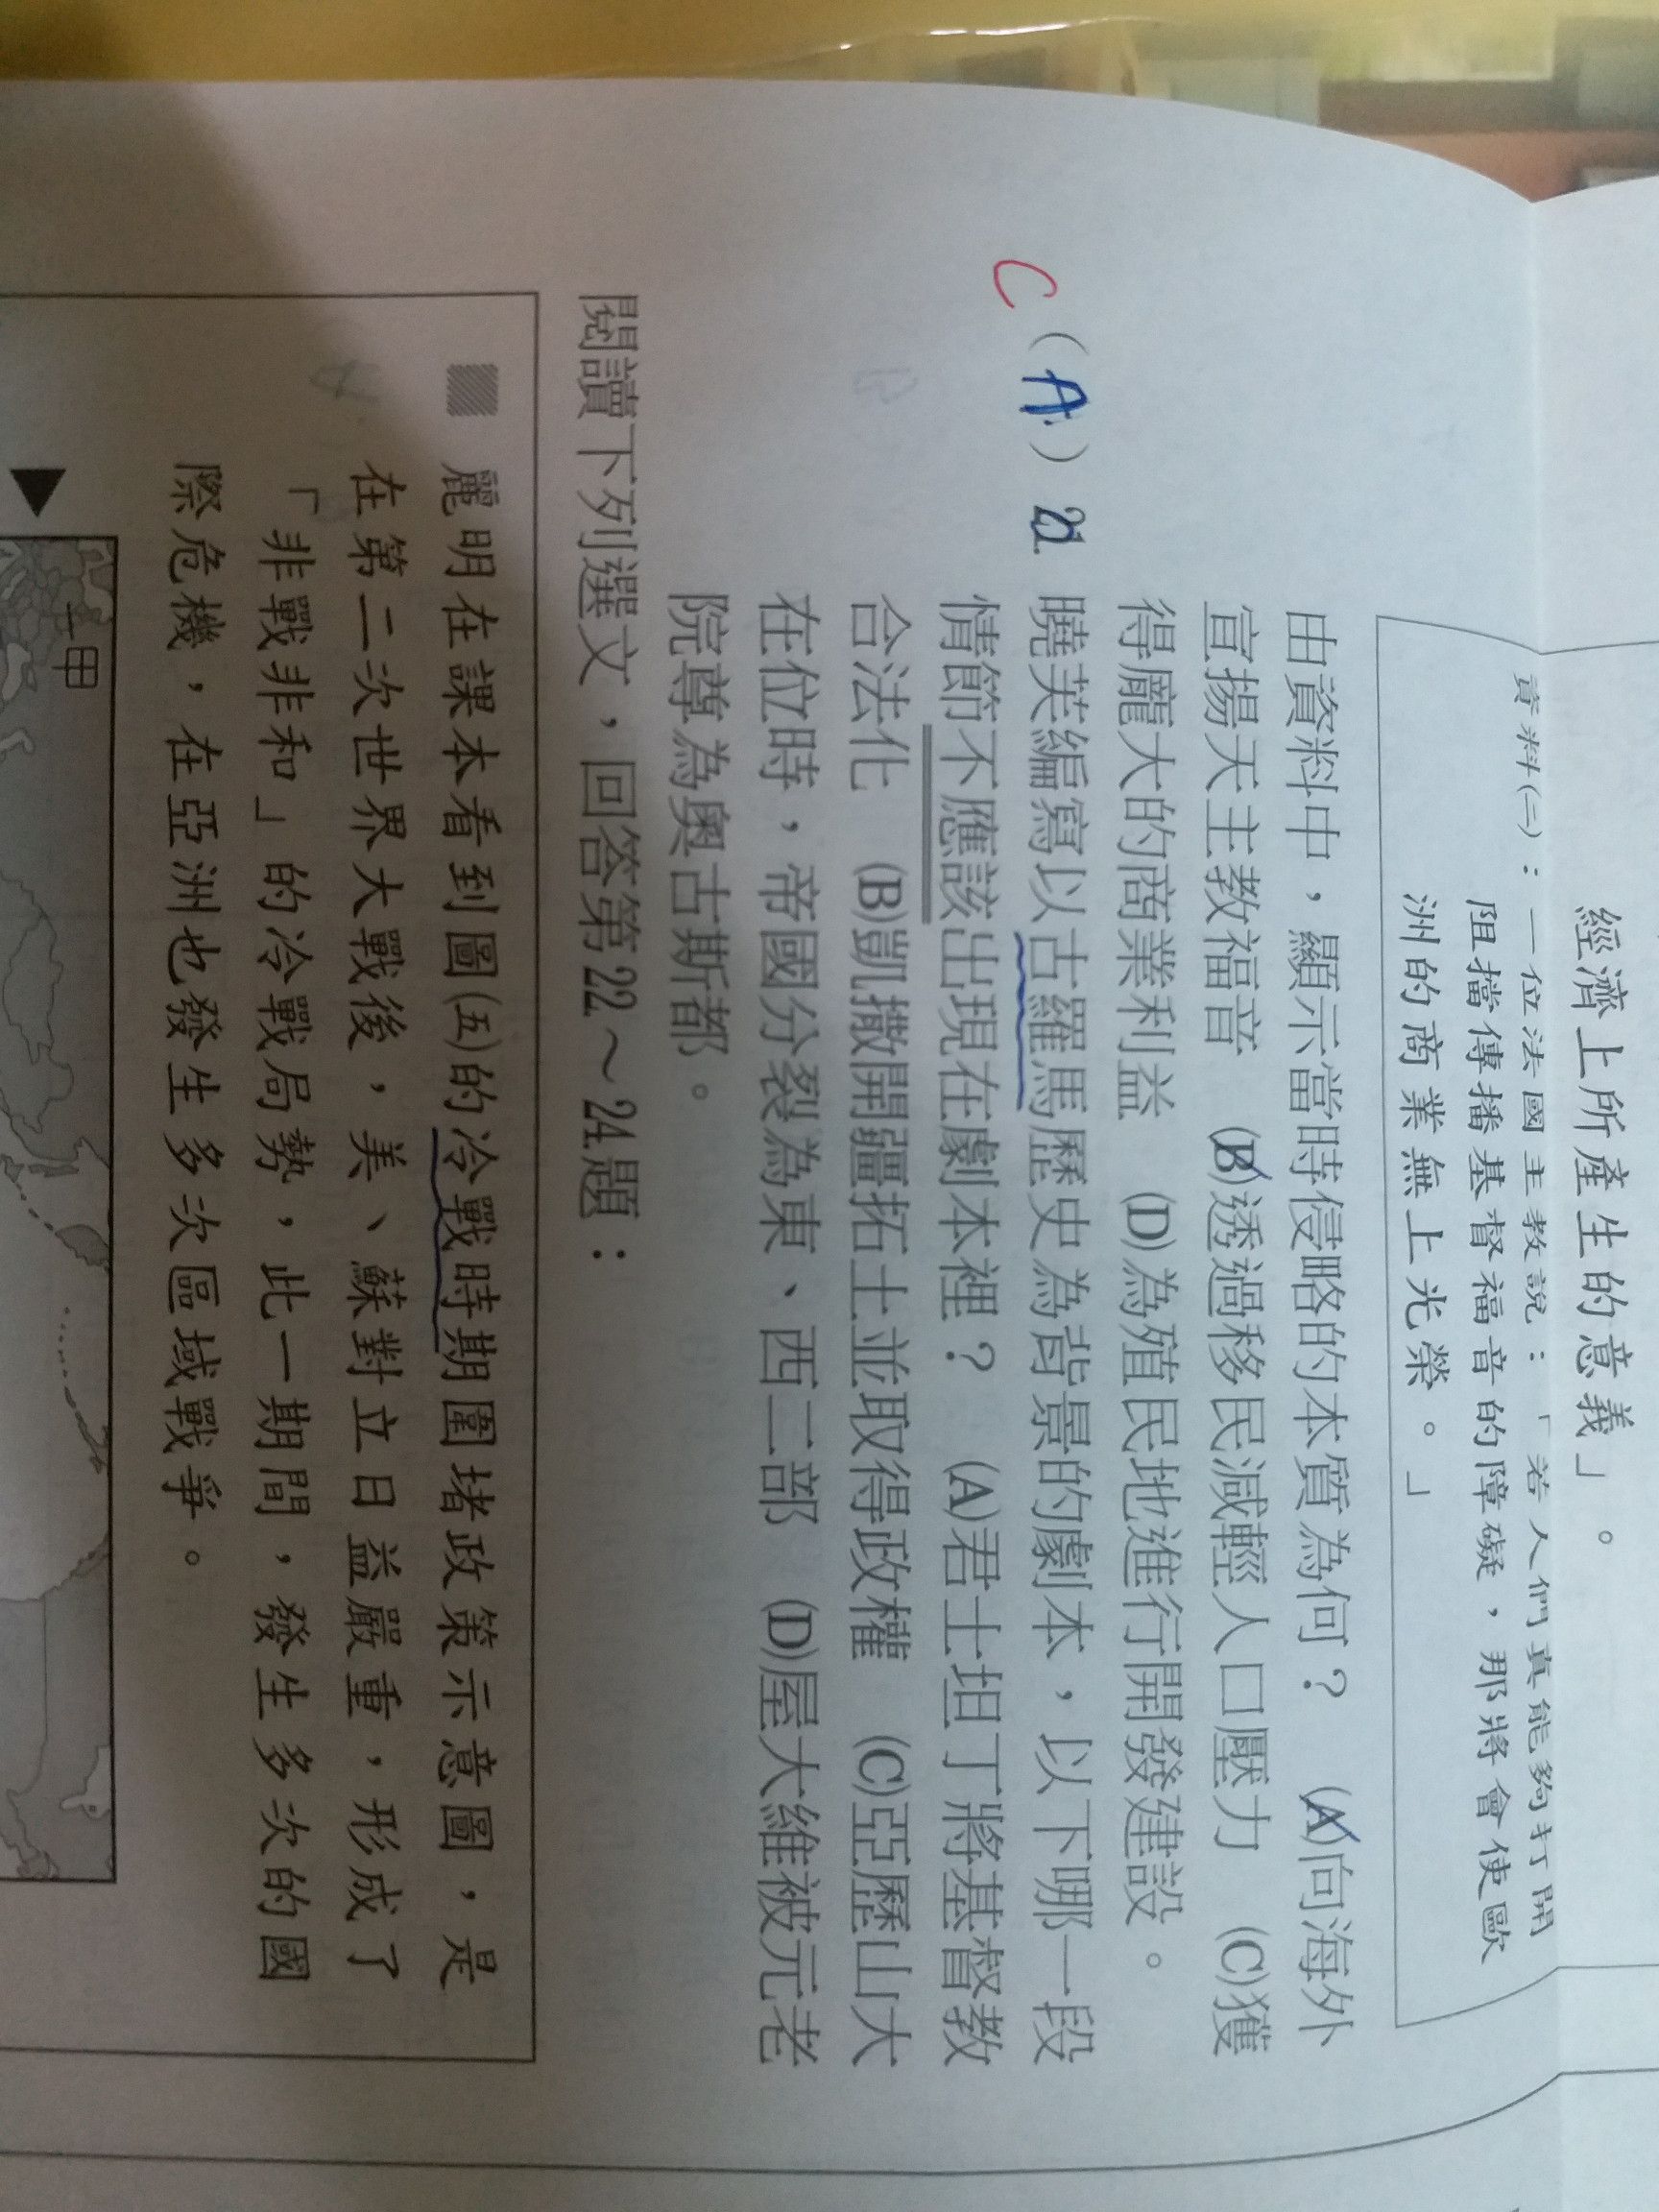 經濟上所產生的意義」。
資料(二)：一位法國主教說：「若人們真能夠打開
阻擋傳播基督福音的障礙，那將會使歐
洲的商業無上光榮。」
由資料中，顯示當時侵略的本質為何？ (A)向海外
宣揚天主教福音 (B)透過移民減輕人口壓力 (C)獲
得龐大的商業利益 (D)為殖民地進行開發建設。
C (A) 21 曉芙編寫以古羅馬歷史為背景的劇本，以下哪一段
情節不應該出現在劇本裡？ (A)君士坦丁將基督教
合法化 (B)凱撒開疆拓土並取得政權 (C)亞歷山大
在位時，帝國分裂為東、西二部 (D)屋大維被元老
院尊為奧古斯都。
閱讀下列選文，回答第22～24題：
麗明在課本看到圖(五)的冷戰時期圍堵政策示意圖，是
在第二次世界大戰後，美、蘇對立日益嚴重，形成了
「非戰非和」的冷戰局勢，此一期間，發生多次的國
際危機，在亞洲也發生多次區域戰爭。
甲